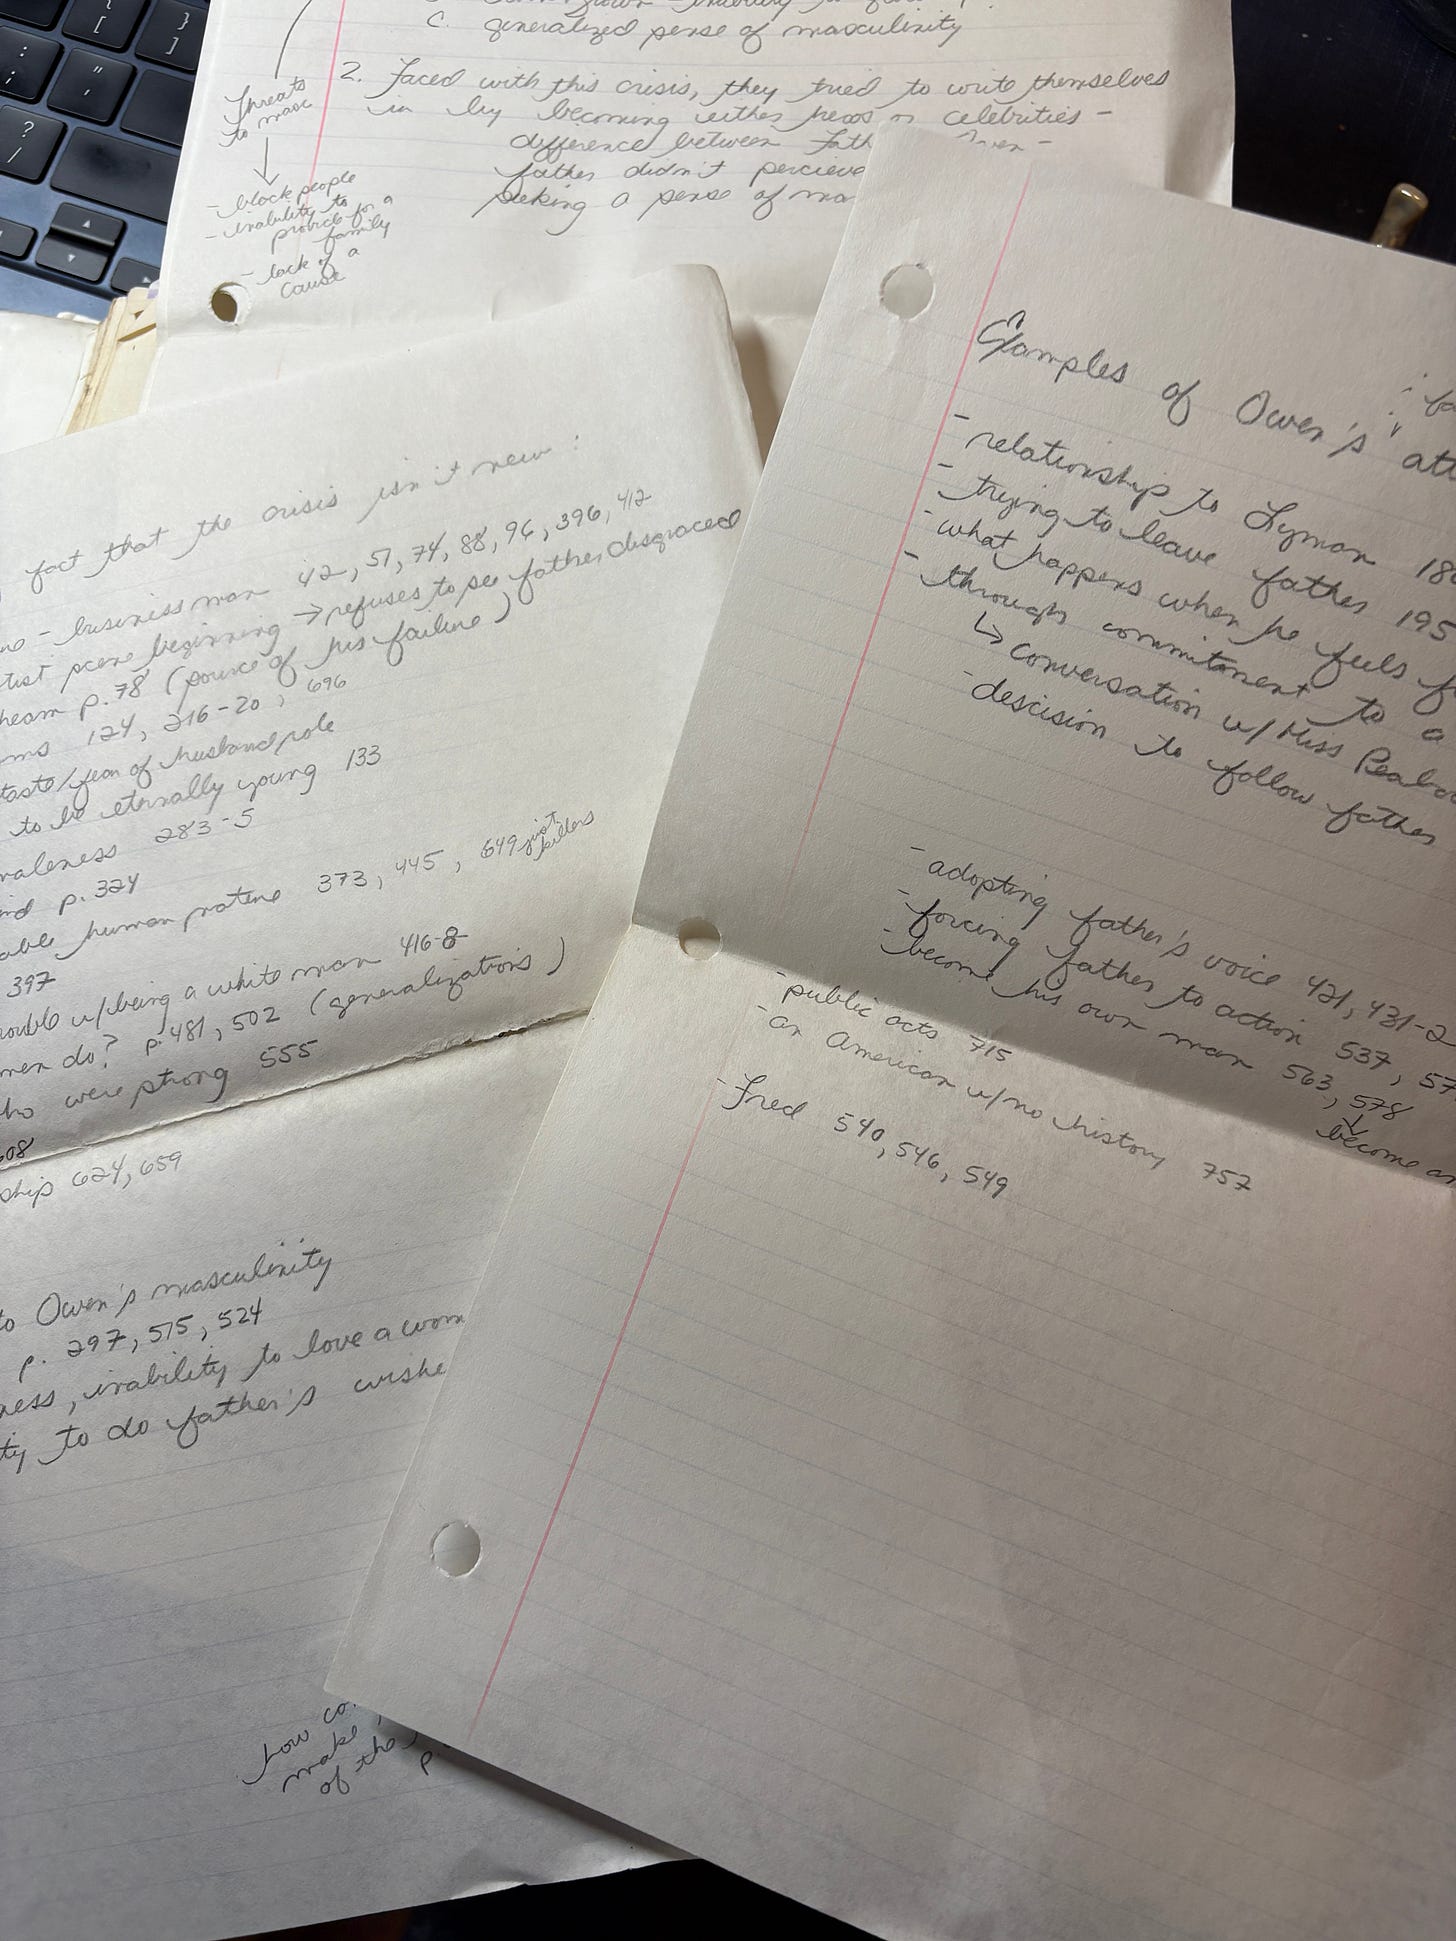 C. generalized sense of masculinity
2. Faced with this crisis, they tried to write themselves
in by becoming either heros or celebrities -
difference between Fath
father didn't percieve
seeking a sense of ma
Threats
to masc
- black people
- inability to
provide for a
family
- lack of a
cause
fact that the crisis isn't new :
- business man 42, 51, 74, 88, 96, 396, 412
scene beginning → refuses to see father disgraced
p. 78 (source of his failure)
124, 216-20, 696
/fear of husband role
to be eternally young 133
maleness 283-5
p. 324
able human nature 373, 445, 649 just
killers
397
trouble w/being a white man 416-8
men do? p. 481, 502 (generalizations)
who were strong 555
608
ship 624, 659
to Owen's masculinity
p. 297, 515, 524
ness, inability to love a wom
ty to do father's wishe
how co
make
of the
p.
Examples of Owen's att
- relationship to Lyman 18
- trying to leave father 195
- what happens when he feels f
- through commitment to a
↳ conversation w/ Miss Peabo
- descision to follow father
- adopting father's voice 421, 431-2
- forcing father to action 537, 57
- become his own man 563, 578
↓
become an
- public acts 715
- an American w/no history 757
- Fred 540, 546, 549
{
[
}
]
:
;
"
'
?
/